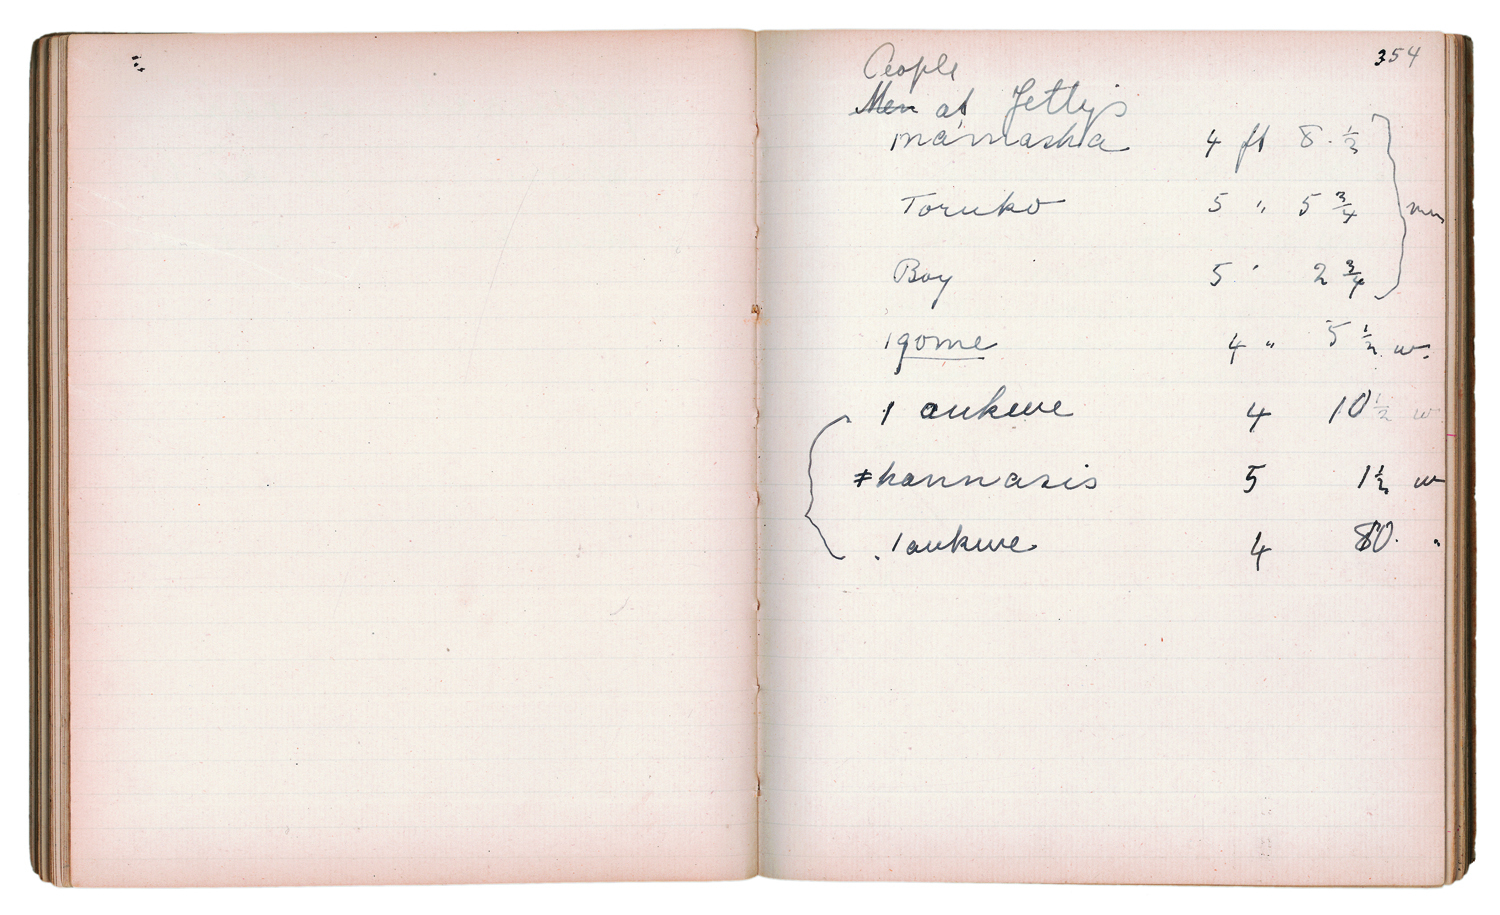 354
People
Men at Jetty's
mámashia 4 ft 8 ½
Toruko 5 " 5 ¾
Boy 5 ' 2 ¾
men
ıgome 4 " 5 ½ w.
ı aukwe 4 10 ½ w
ǂhannasis 5 1½ w
ıaukwe 4 "